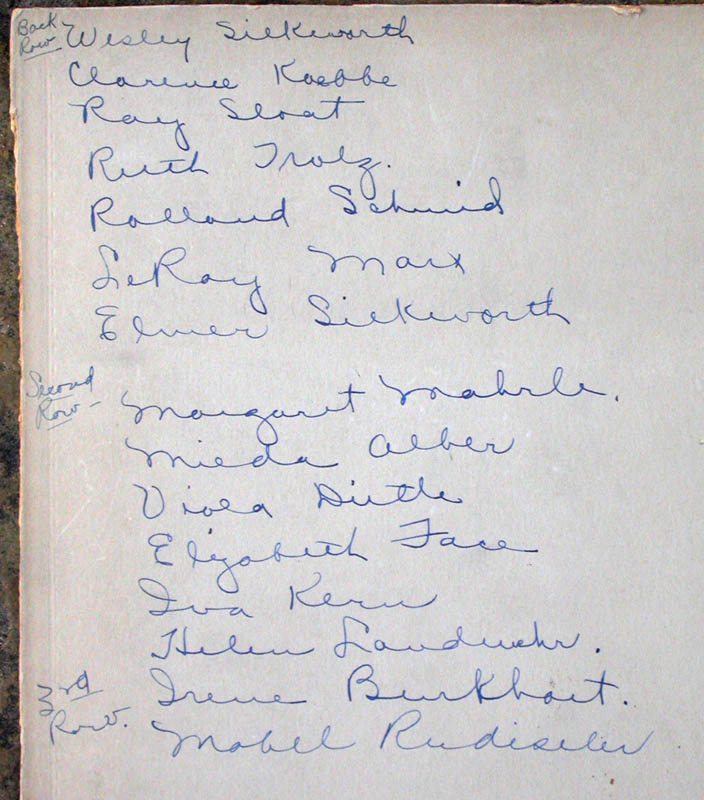 Back Row Wesley Silkworth
Clarence Koebbe
Ray Sloat
Ruth Trolz.
Rolland Schmid
LeRoy Marx
Elmer Silkworth
Second Row- Margaret Mahrle.
Mieda Alber
Viola Dietle
Elizabeth Face
Iva Kern
Helen Landwehr.
3rd Row. Irene Burkhart.
Mabel Rudiseler